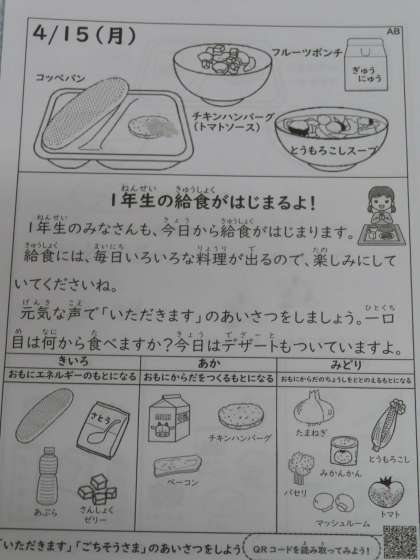 4/15(月)
AB
コッペパン
フルーツポンチ
ぎゅう
にゅう
チキンハンバーグ
(トマトソース)
とうもろこしスープ
1年生の給食がはじまるよ!
1年生のみなさんも、今日から給食がはじまります。
給食には、毎日いろいろな料理が出るので、楽しみにして
いてくださいね。
元気な声で「いただきます」のあいさつをしましょう。一口
目は何から食べますか?今日はデザートもついていますよ。
きいろ
あか
みどり
おもにエネルギーのもとになる
おもにからだをつくるもとになる
おもにからだのちょうしをととのえるもとになる
さとう
チキンハンバーグ
たまねぎ
とうもろこし
みかんかん
ベーコン
パセリ
トマト
あぶら
さんしょく
ゼリー
マッシュルーム
「いただきます」「ごちそうさま」のあいさつをしよう
QRコードを読み取ってみよう!